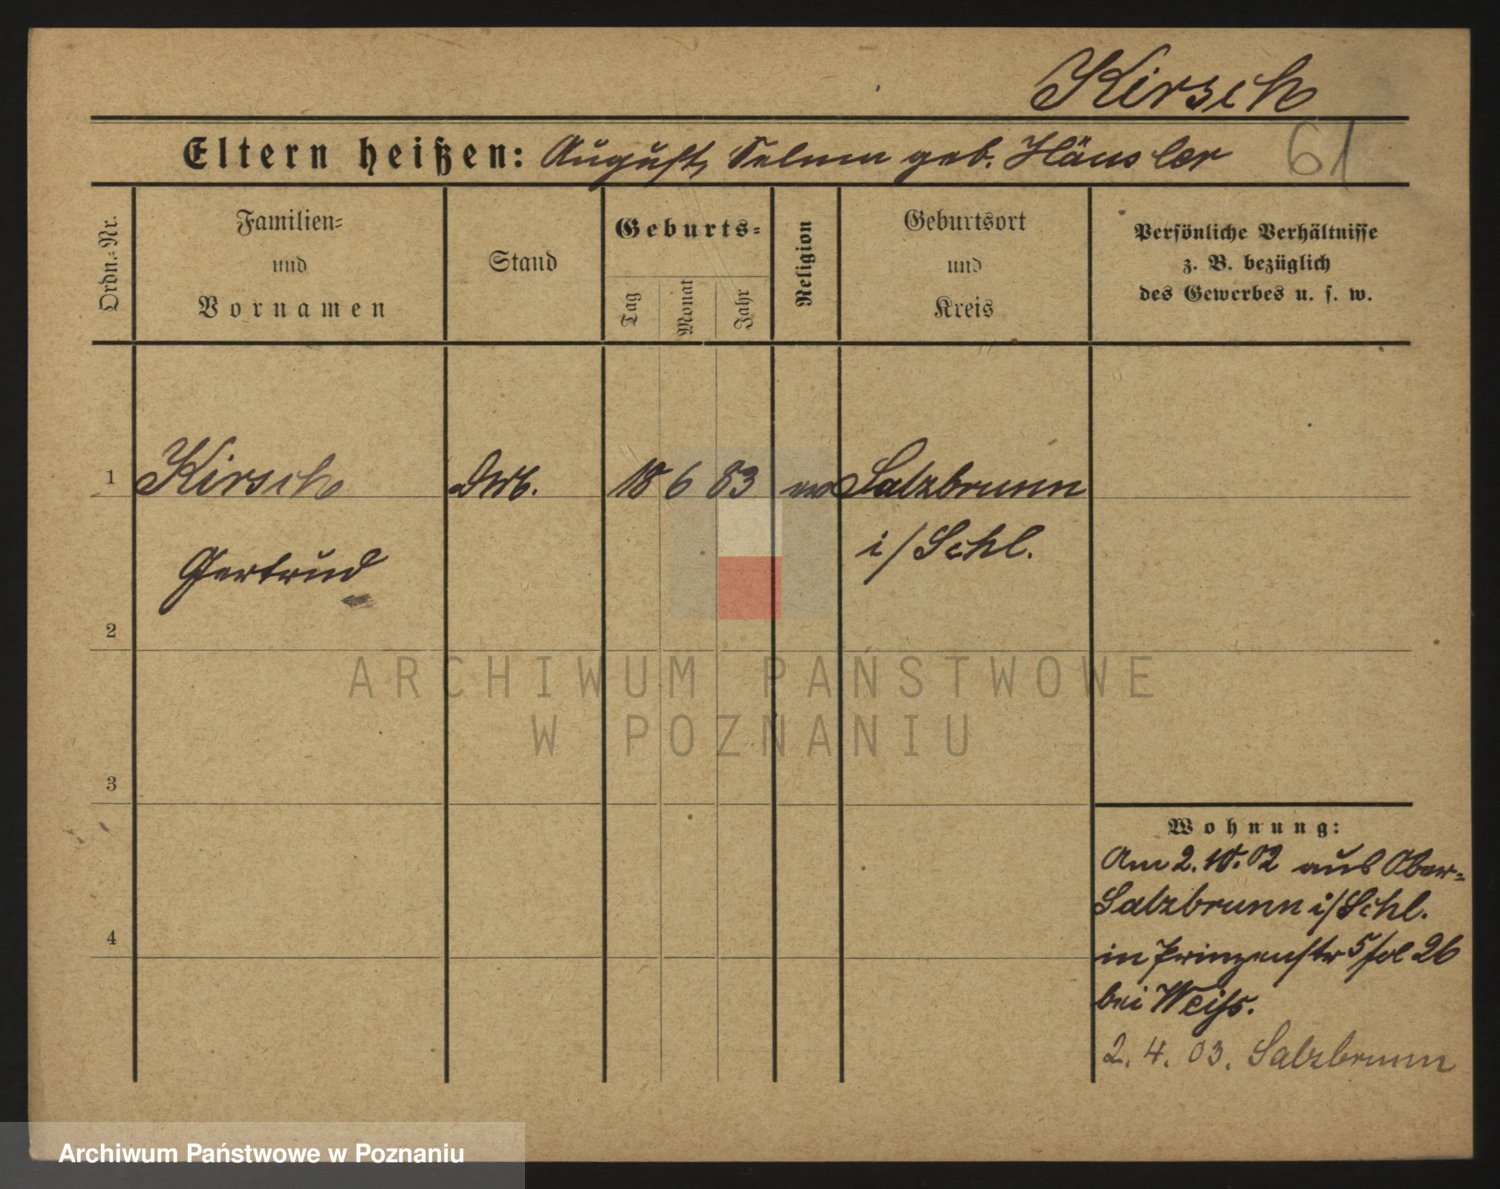 Kirsch
Eltern heißen: August, Selma geb. Häusler 61
Ordn.-Nr.
Familien-
und
Vornamen
Stand
Geburts-
Tag
Monat
Jahr
Religion
Geburtsort
und
Kreis
Persönliche Verhältnisse
z. B. bezüglich
des Gewerbes u. s. w.
1 Kirsch 18 6 83 ev Salzbrunn
i/Schl.
Gertrud
2
ARCHIWUM PAŃSTWOWE
W POZNANIU
3
Wohnung:
Am 2.10.02 aus Ober-
Salzbrunn i/Schl.
4
in Prinzenstr 5 fol 26
bei Weiss.
2. 4. 03. Salzbrunn
Archiwum Państwowe w Poznaniu